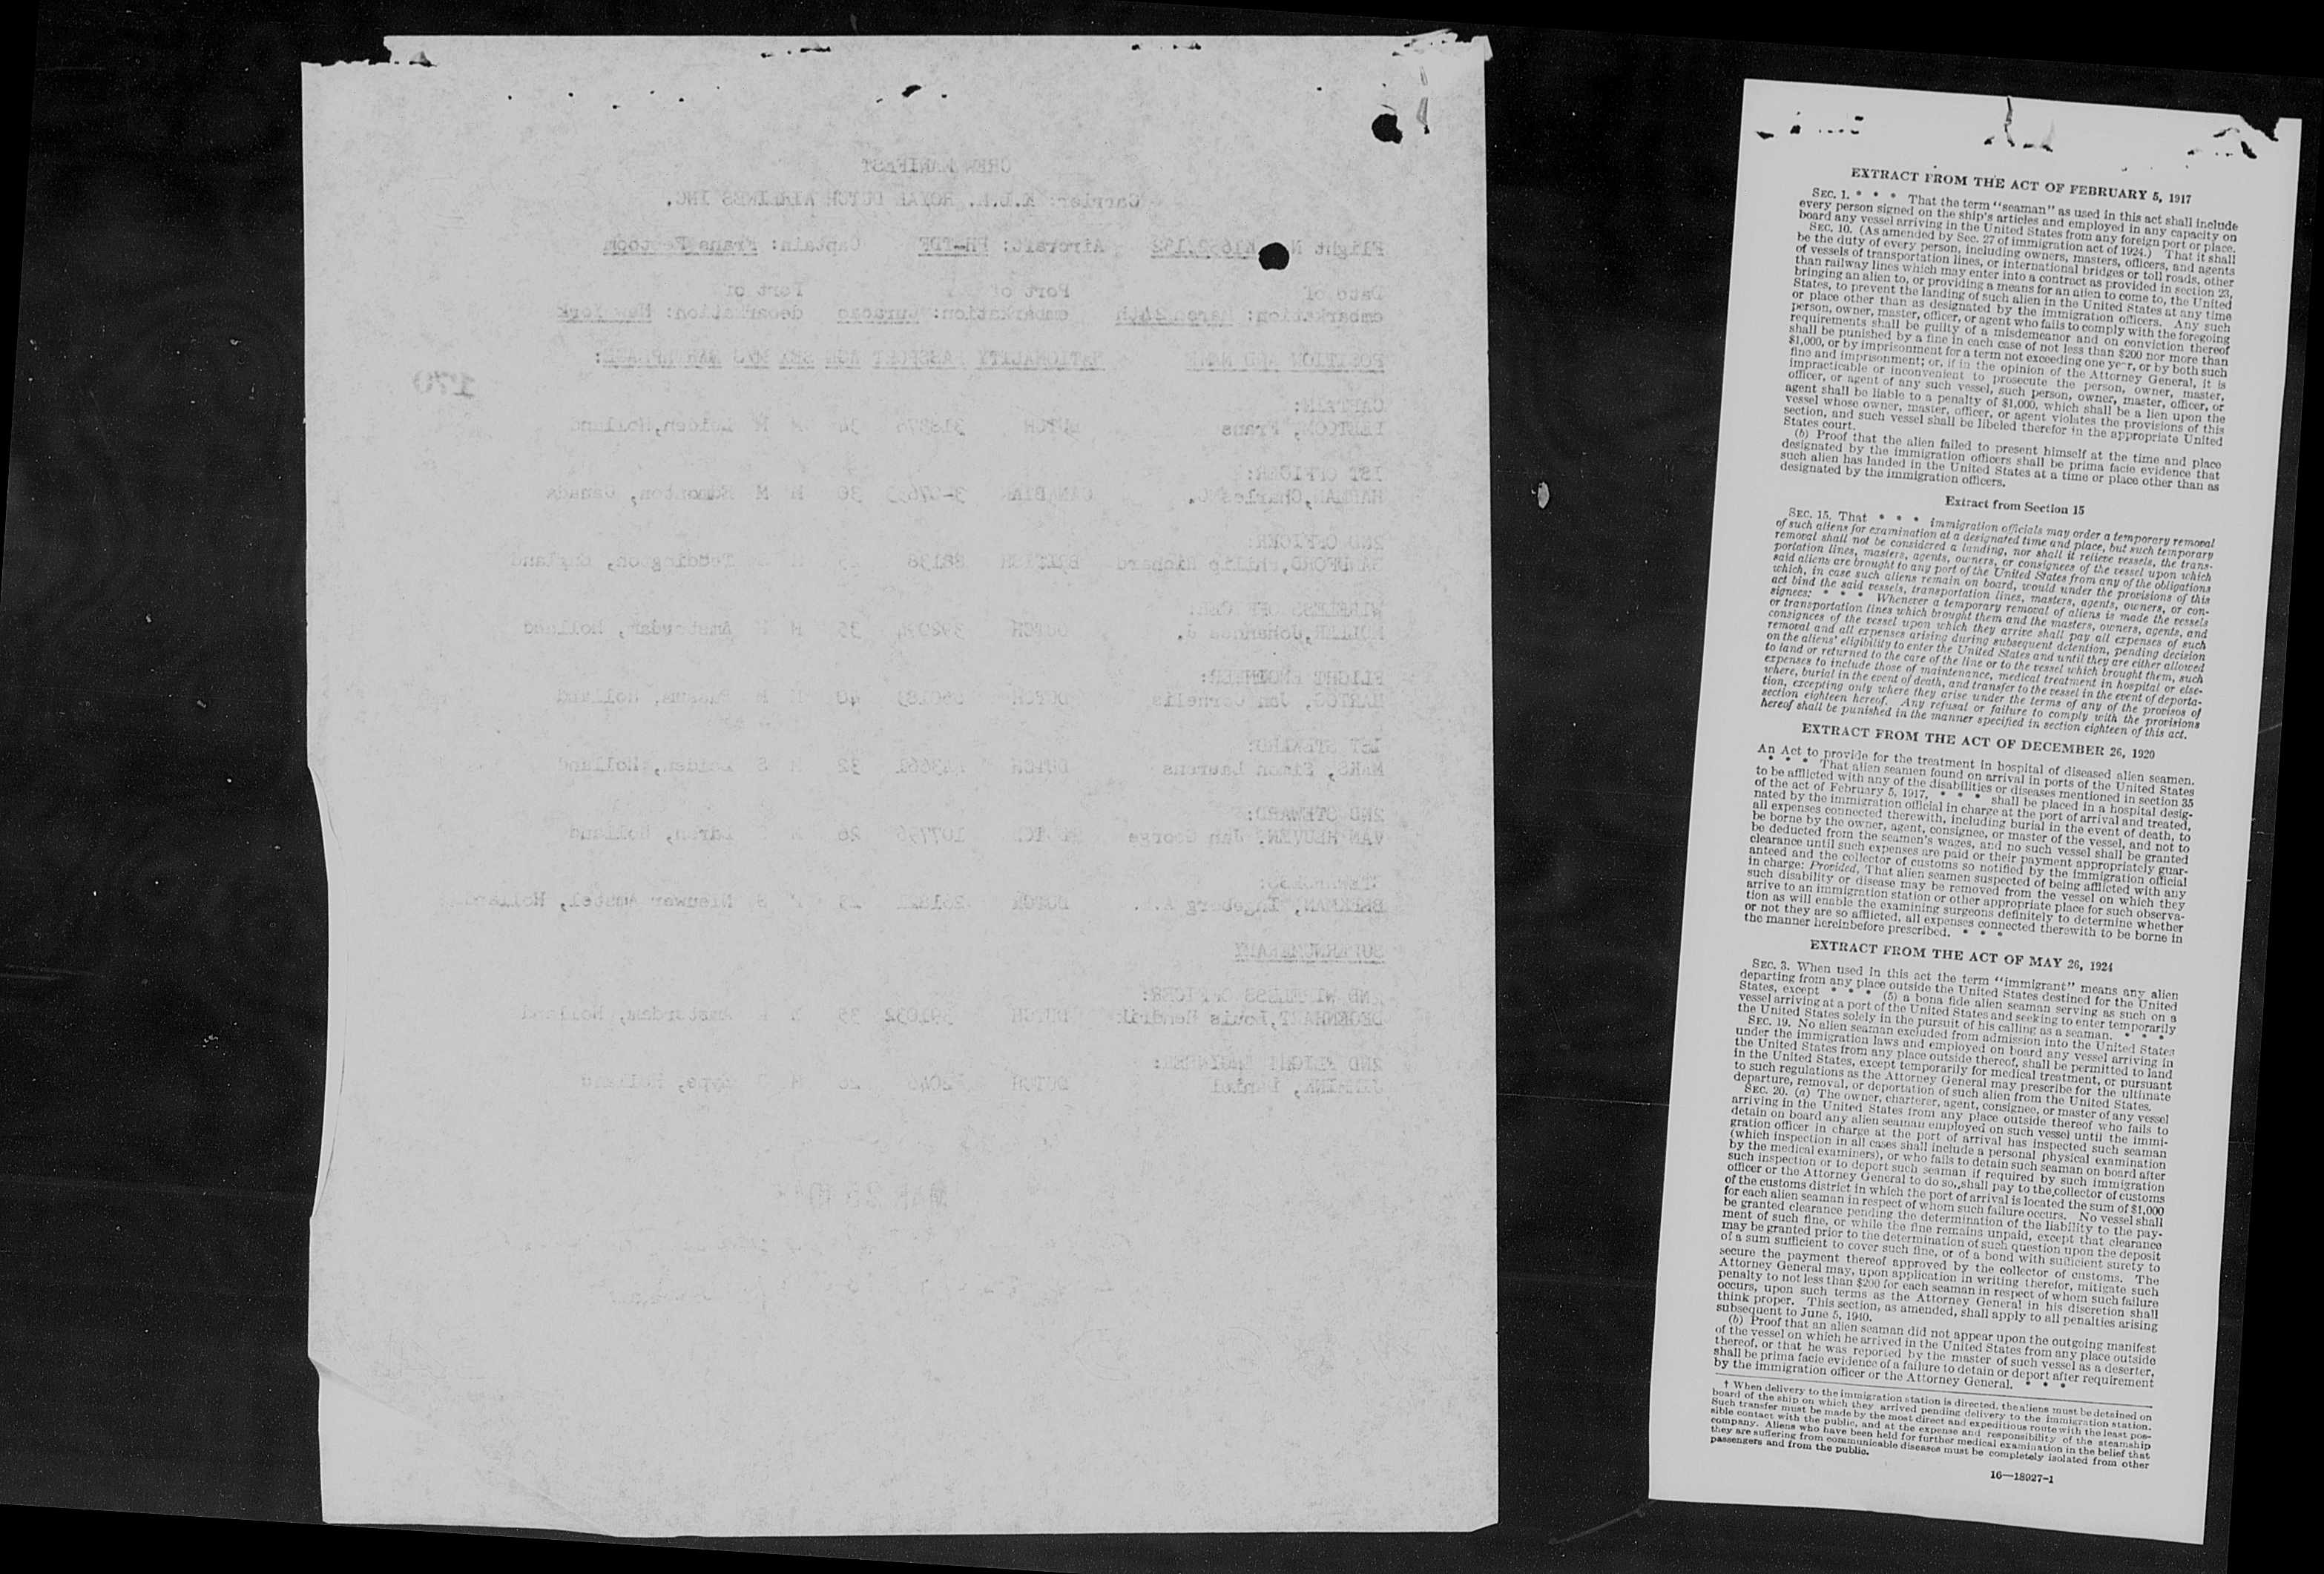 CREW MANIFEST
Carrier: K.L.M. ROYAL DUTCH AIRLINES INC.
Flight Aircraft: PH-TDF Captain: Frans
Date of Port of Port of
embarkation: March 24th embarkation: Curacao debarkation: New York
POSITION AND NAME NATIONALITY PASSPORT AGE SEX
170
CAPTAIN:
Frans DUTCH 34 M M Leiden, Holland
1ST OFFICER:
Charles CANADIAN 30 M M Edmonton, Canada
2ND OFFICER:
Philip Richard BRITISH 88138 M Teddington, England
WIRELESS OFFICER:
Johannes J. DUTCH 35 M M Amsterdam, Holland
FLIGHT ENGINEER:
HARTOG, Jan Cornelis DUTCH 40 M M Bussum, Holland
1ST STEWARD:
MAKS, Simon Laurens DUTCH 32 M S Leiden, Holland
2ND STEWARD:
VAN HEUVEN, Jan George DUTCH 107796 26 M Laren, Holland
STEWARDESS:
BEEKMAN, Ingeborg DUTCH S Nieuwer Amstel, Holland
SUPERNUMERARY
2ND WIRELESS OFFICER:
Louis Hendrik DUTCH 391032 Amsterdam, Holland
2ND FLIGHT ENGINEER:
DUTCH Holland
EXTRACT FROM THE ACT OF FEBRUARY 5, 1917
SEC. 1. * * * That the term "seaman" as used in this act shall include
every person signed on the ship's articles and employed in any capacity on
board any vessel arriving in the United States from any foreign port or place.
SEC. 10. (As amended by Sec. 27 of immigration act of 1924.) That it shall
be the duty of every person, including owners, masters, officers, and agents
of vessels of transportation lines, or international bridges or toll roads, other
than railway lines which may enter into a contract as provided in section 23,
bringing an alien to, or providing a means for an alien to come to, the United
States, to prevent the landing of such alien in the United States at any time
or place other than as designated by the immigration officers. Any such
person, owner, master, officer, or agent who fails to comply with the foregoing
requirements shall be guilty of a misdemeanor and on conviction thereof
shall be punished by a fine in each case of not less than $200 nor more than
$1,000, or by imprisonment for a term not exceeding one year, or by both such
fine and imprisonment; or, if in the opinion of the Attorney General, it is
impracticable or inconvenient to prosecute the person, owner, master,
officer, or agent of any such vessel, such person, owner, master, officer, or
agent shall be liable to a penalty of $1,000, which shall be a lien upon the
vessel whose owner, master, officer, or agent violates the provisions of this
section, and such vessel shall be libeled therefor in the appropriate United
States court.
(b) Proof that the alien failed to present himself at the time and place
designated by the immigration officers shall be prima facie evidence that
such alien has landed in the United States at a time or place other than as
designated by the immigration officers.
Extract from Section 15
SEC. 15. That * * * immigration officials may order a temporary removal
of such aliens for examination at a designated time and place, but such temporary
removal shall not be considered a landing, nor shall it relieve vessels, the trans-
portation lines, masters, agents, owners, or consignees of the vessel upon which
said aliens are brought to any port of the United States from any of the obligations
which, in case such aliens remain on board, would under the provisions of this
act bind the said vessels, transportation lines, masters, agents, owners, or con-
signees: * * * Whenever a temporary removal of aliens is made the vessels
or transportation lines which brought them and the masters, owners, agents, and
consignees of the vessel upon which they arrive shall pay all expenses of such
removal and all expenses arising during subsequent detention, pending decision
on the aliens' eligibility to enter the United States and until they are either allowed
to land or returned to the care of the line or to the vessel which brought them, such
expenses to include those of maintenance, medical treatment in hospital or else-
where, burial in the event of death, and transfer to the vessel in the event of deporta-
tion, excepting only where they arise under the terms of any of the provisos of
section eighteen hereof. Any refusal or failure to comply with the provisions
hereof shall be punished in the manner specified in section eighteen of this act.
EXTRACT FROM THE ACT OF DECEMBER 26, 1920
An Act to provide for the treatment in hospital of diseased alien seamen.
* * * That alien seamen found on arrival in ports of the United States
to be afflicted with any of the disabilities or diseases mentioned in section 35
of the act of February 5, 1917, * * * shall be placed in a hospital desig-
nated by the immigration official in charge at the port of arrival and treated,
all expenses connected therewith, including burial in the event of death, to
be borne by the owner, agent, consignee, or master of the vessel, and not to
be deducted from the seamen's wages, and no such vessel shall be granted
clearance until such expenses are paid or their payment appropriately guar-
anteed and the collector of customs so notified by the immigration official
in charge: Provided, That alien seamen suspected of being afflicted with any
such disability or disease may be removed from the vessel on which they
arrive to an immigration station or other appropriate place for such observa-
tion as will enable the examining surgeons definitely to determine whether
or not they are so afflicted, all expenses connected therewith to be borne in
the manner hereinbefore prescribed. * * *
EXTRACT FROM THE ACT OF MAY 26, 1924
SEC. 3. When used in this act the term "immigrant" means any alien
departing from any place outside the United States destined for the United
States, except * * * (5) a bona fide alien seaman serving as such on a
vessel arriving at a port of the United States and seeking to enter temporarily
the United States solely in the pursuit of his calling as a seaman. * * *
SEC. 19. No alien seaman excluded from admission into the United States
under the immigration laws and employed on board any vessel arriving in
the United States from any place outside thereof, shall be permitted to land
in the United States, except temporarily for medical treatment, or pursuant
to such regulations as the Attorney General may prescribe for the ultimate
departure, removal, or deportation of such alien from the United States.
SEC. 20. (a) The owner, charterer, agent, consignee, or master of any vessel
arriving in the United States from any place outside thereof who fails to
detain on board any alien seaman employed on such vessel until the immi-
gration officer in charge at the port of arrival has inspected such seaman
(which inspection in all cases shall include a personal physical examination
by the medical examiners), or who fails to detain such seaman on board after
such inspection or to deport such seaman if required by such immigration
officer or the Attorney General to do so, shall pay to the collector of customs
of the customs district in which the port of arrival is located the sum of $1,000
for each alien seaman in respect of whom such failure occurs. No vessel shall
be granted clearance pending the determination of the liability to the pay-
ment of such fine, or while the fine remains unpaid, except that clearance
may be granted prior to the determination of such question upon the deposit
of a sum sufficient to cover such fine, or of a bond with sufficient surety to
secure the payment thereof approved by the collector of customs. The
Attorney General may, upon application in writing therefor, mitigate such
penalty to not less than $200 for each seaman in respect of whom such failure
occurs, upon such terms as the Attorney General in his discretion shall
think proper. This section, as amended, shall apply to all penalties arising
subsequent to June 5, 1940.
(b) Proof that an alien seaman did not appear upon the outgoing manifest
of the vessel on which he arrived in the United States from any place outside
thereof, or that he was reported by the master of such vessel as a deserter,
shall be prima facie evidence of a failure to detain or deport after requirement
by the immigration officer or the Attorney General. * * *
† When delivery to the immigration station is directed, the aliens must be detained on
board of the ship on which they arrived pending delivery to the immigration station.
Such transfer must be made by the most direct and expeditious route with the least pos-
sible contact with the public, and at the expense and responsibility of the steamship
company. Aliens who have been held for further medical examination in the belief that
they are suffering from communicable diseases must be completely isolated from other
passengers and from the public.
16—18927-1